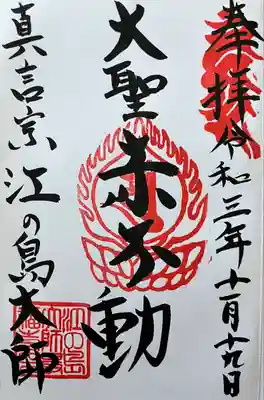 奉拝 令和三年十一月十九日
大聖赤不動
真言宗 江の島大師